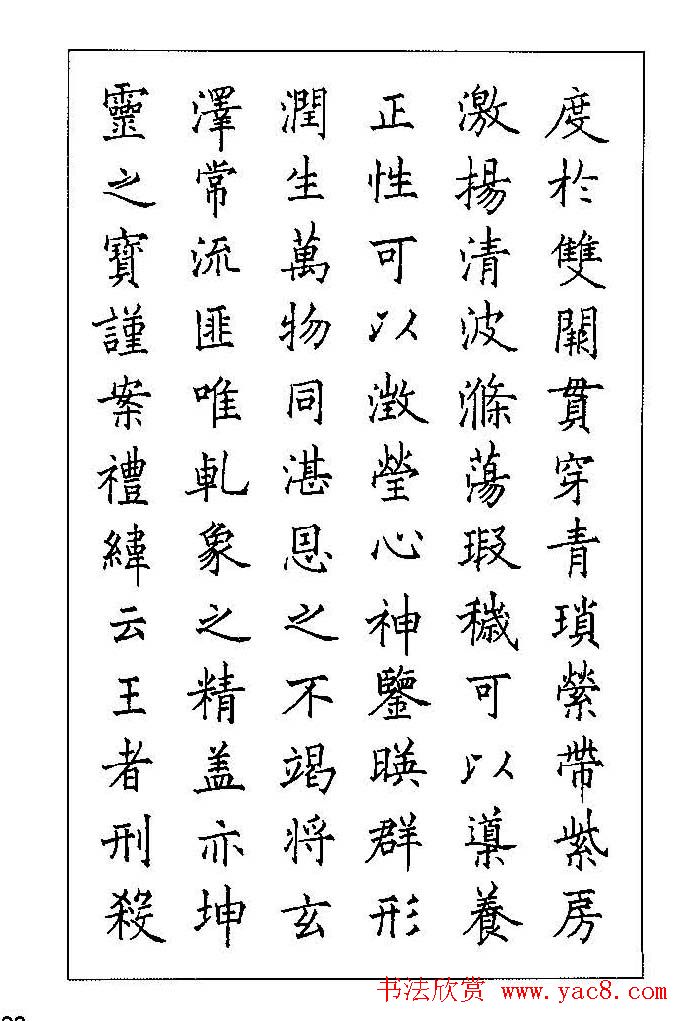 度於雙闕貫穿青瑣縈帶紫房
激揚清波滌蕩瑕穢可以導養
正性可以澂瑩心神鑒暎群形
潤生萬物同湛恩之不竭將玄
澤常流匪唯乹象之精盖亦坤
靈之寶謹案禮緯云王者刑殺
书法欣赏 www.yac8.com